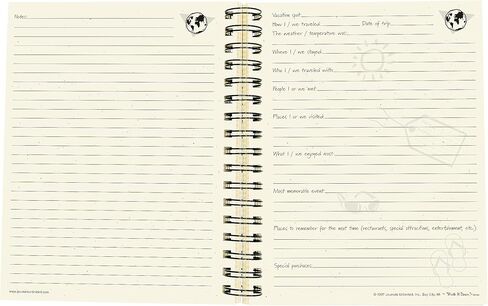 Notes:
www.journalsunlimited.com
Vacation spot
How I / we traveled Date of trip
The weather / temperature was:
Where I / we stayed
Who I / we traveled with
People I or we met
Places I or we visited
What I / we enjoyed most
Most memorable event
Places to remember for the next time (restaurants, special attraction, entertainment, etc.)
Special purchases
© 1997 Journals Unlimited, Inc. Bay City, MI "Write it Down"